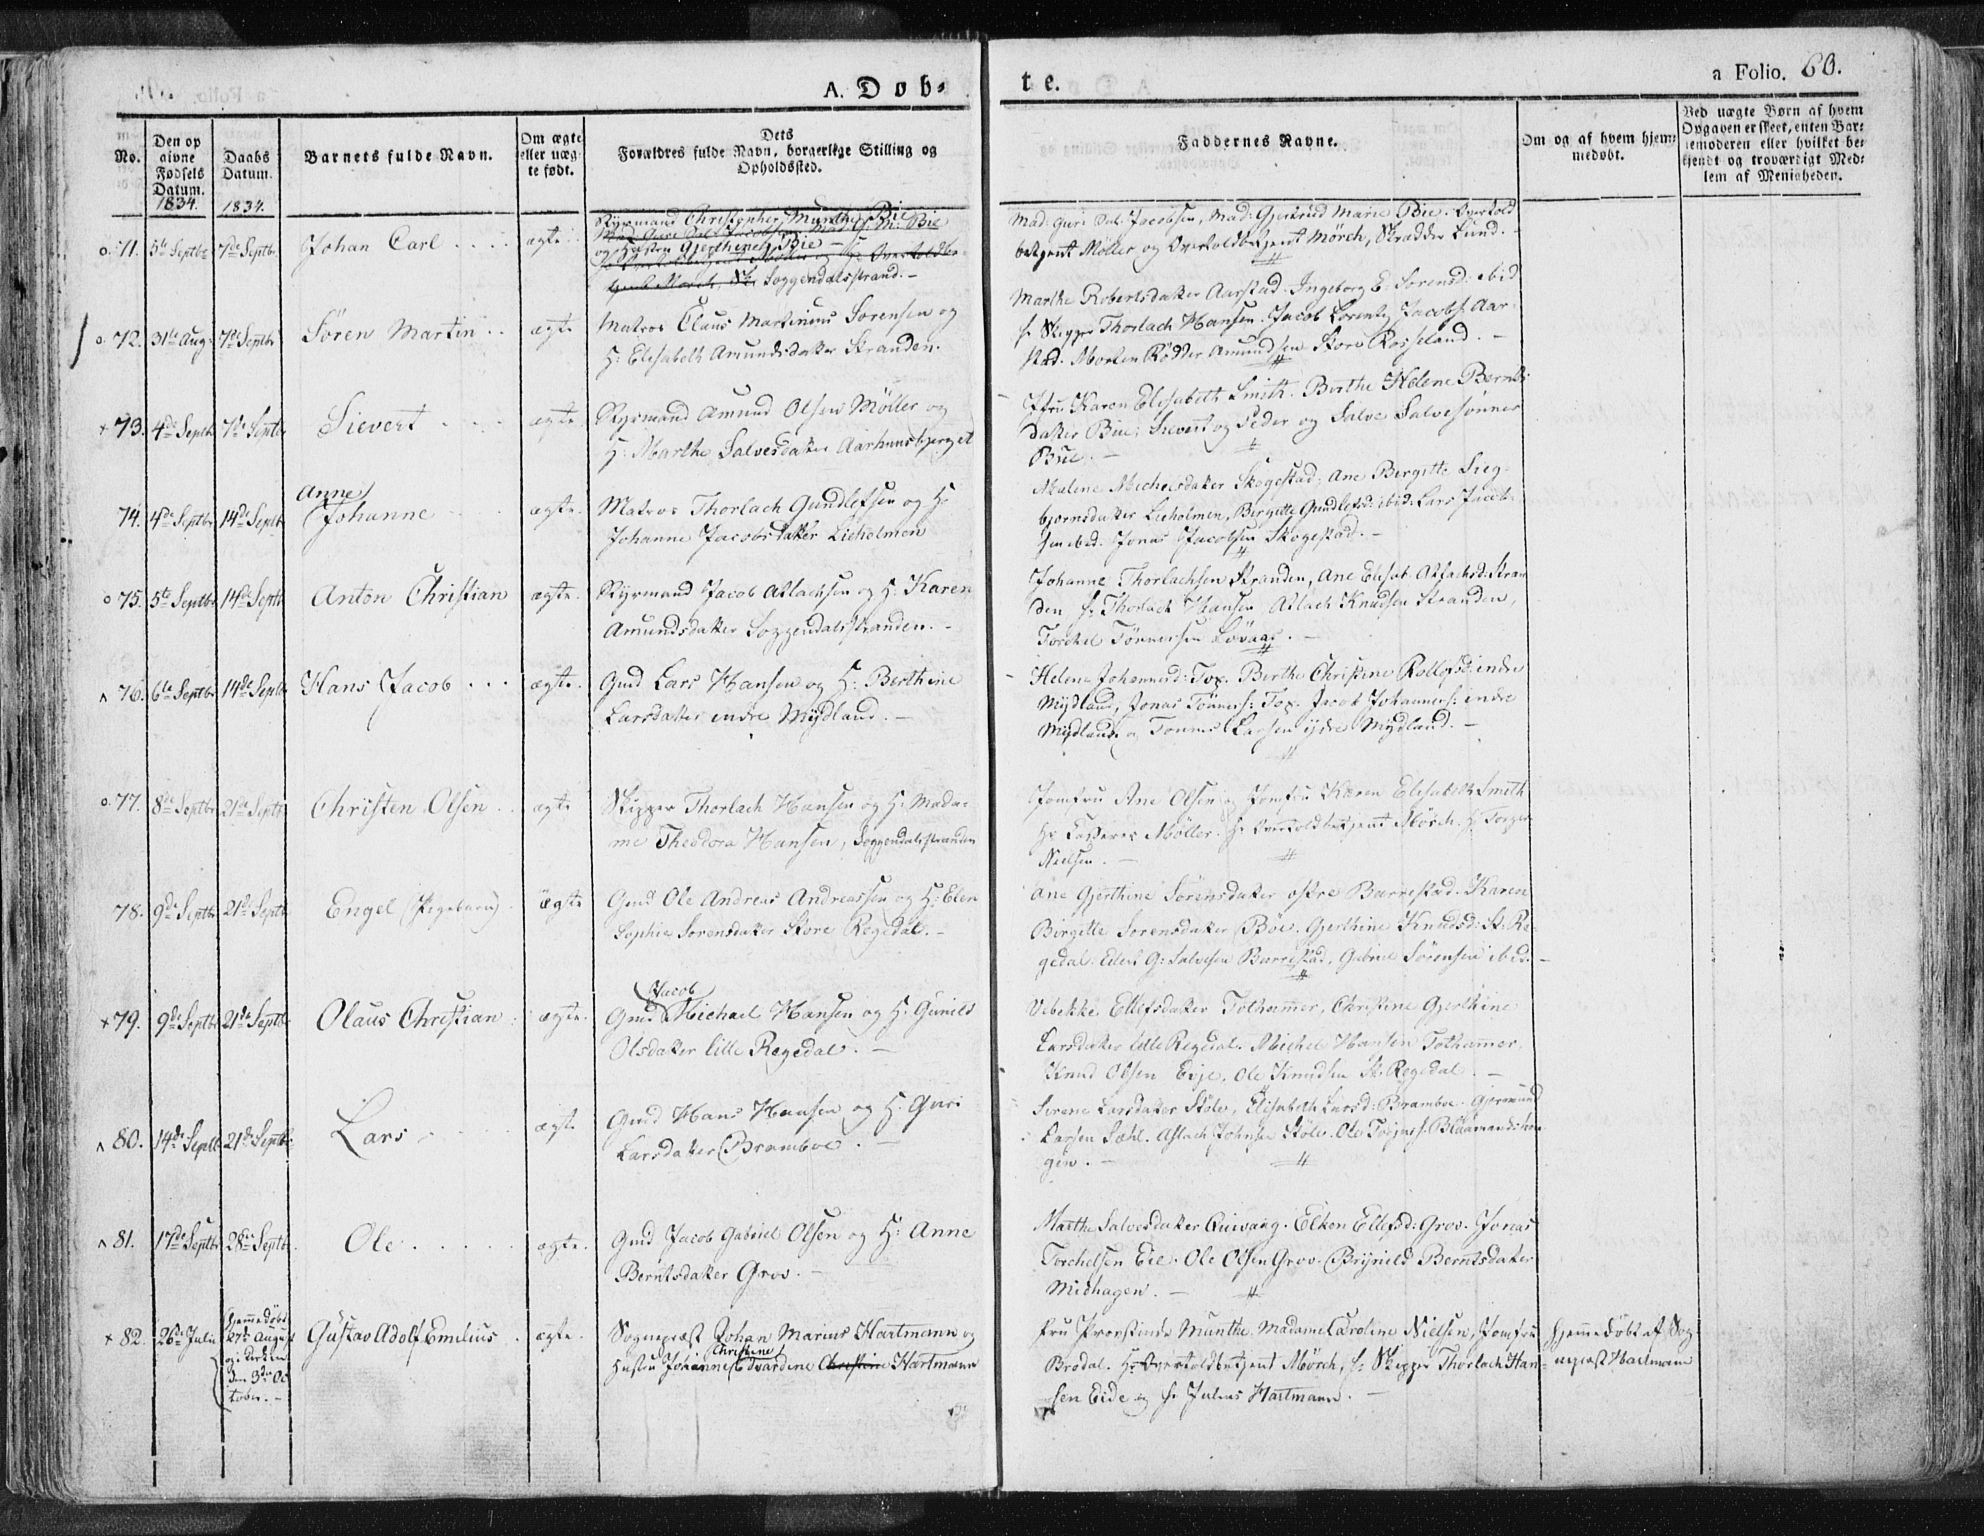 A. Døb-
te.
a Folio. 60.
No.
Den op
givne
Fødsels
Datum.
1834.
Daabs
Datum.
1834.
Barnets fulde Navn.
Om ægte
eller uæg-
te født.
Dets
Forældres fulde Navn, borgerlige Stilling og
Opholdssted.
Faddernes Navne.
Om og af hvem hjem-
medøbt.
Ved uægte Børn af hvem
Opgaven er skeet, enten Bar-
nemoderen eller hvilket be-
kjendt og troværdigt Med-
lem af Menigheden.
o. 71. 5te Septbr 7de Septbr. Johan Carl . . . . ægte
Styrmand Christopher Munthe Bie
og Hustru Gjerthine Bie
Soggendalsstrand. -
Mad: Guri Sal: Jacobsen, Mad: Gjertrud Marie Bie. Overtold
betjent Møller og Overtoldbetjent Mörch, Skrædder Lund. -
o. 72. 31te Aug: 7de Septbr Sören Martin . . ægte
Matros Claus Martinius Sörensen og
H: Elisabeth Amundsdatter Stranden.
Marthe Robertsdatter Aarstad. Ingeborg E. Sörensd: ibid
hr Skipper Thorlach Hansen. Jacob Lorentz Jacobs: Aar-
stad. Morten Rödder Amundsen Store Rosseland. -
+ 73. 4de Septbr 7de Septbr Sievert . . . . ægte
Styrmand Amund Olsen Möller og
H: Marthe Salvesdatter Aarhunsbjerget
Jfru Karen Elisabeth Smith. Birthe Helene Bernts
datter Bie; Sievert og Peder og Salve Salvesönner
Bue. -
74. 4de Septbr 14de Septbr Anne
Johanne . . . ægte.
Matros Thorlach Gundlefsen og H:
Johanne Jacobsdatter Lieholmen
Malene Michelsdatter Skogestad; Ane Bergitte Sieg-
bjornsdatter Lieholmen, Birgitte Gundlefsd: ibid: Lars Jacob-
sen ibid. Jonas Jacobsen Skogestad. -
o 75. 5te Septbr 14de Septbr Anton Christian ægte.
Styrmand Jacob Atlachsen og H: Karen
Amundsdatter Soggendalsstranden. -
Johanne Thorlachsen Stranden, Ane Elisab: Atlachsd: Stran
den hr Thorlach Hansen, Atlach Knudsen Stranden,
Torckel Tönnersen Lövaas. -
^ 76. 6te Septbr 14de Septbr Hans Jacob . . . ægte.
Gmd Lars Hansen og H: Berthine
Larsdatter indre Mydland. -
Helene Johannesd: Top. Berthe Christine Rollofsd: indre
Mydland, Jonas Tönness: Top. Jacob Johanness: indre
Mydland og Tönnes Larsen ydre Mydland. -
o. 77. 8de Septbr 21de Septbr Christen Olsen . ægte
Skipper Thorlach Hansen og H: Mada-
me Theodora Hansen, Soggendalsstranden
Jomfru Ane Olsen og Jomfru Karen Elisabeth Smith
Hr Casserer Möller. Hr Overtoldbetjent Mörch. Hr Torger
Nielsen. -
78. 9de Septbr 21de Septbr Engel (Pigebarn) . ægte
Gmd Ole Andreas Andreassen og H: Elen
Sophie Sörensdatter Store Regedal. -
Ane Gjerthine Sörensdatter östre Barrestad. Karen
Birgitte Sörensdatter Böe. Gjerthine Knudsd: St: Re-
gedal. Edvd G: Salvesen Barrestad, Gabriel Sörensen ibid. -
+ 79. 9de Septbr 21de Septbr Olaus Christian . ægte.
Jacob
Gmd Michael Hansen og H: Gunild
Olsdatter lille Regedal. -
Vebekke Ellefsdatter Tothammer, Christine Gjerthine
Larsdatter lille Regedal. Michel Hansen Tothammer,
Knud Olsen Eije. Ole Knudsen St: Regedal. -
^ 80. 14de Septbr 21de Septbr Lars . . . . ægte
Gmd Hans Hansen og H. Guri
Larsdatter Bramboe. -
Serene Larsdatter Stöle, Elisabeth Larsd: Bramboe. Gjermund
Larsen Sæhl. Aslach Johnsen Stöle. Ole Torjus: Blaamandshou-
gen. -
^ 81. 17de Septbr 28de Septbr. Ole . . . . . ægte.
Gmd Jacob Gabriel Olsen og H: Anne
Berntsdatter Grov. -
Marthe Salvesdatter Qvivaag. Elken Ellefsd: Grov. Jonas
Torchelsen Eie. Ole Olsen Grov. Brynild Berntsdatter
Midhagen. -
+ 82. 26de Julii Hjemmedöbt
27de August
og i Kirken
den 3die Oc
tober. - Gustav Adolf Emilius . ægte.
Sognepræst Johan Marius Hartmann og
Hustru Johanne Christine Edvardine Christine Hartmann
Fru Provstinde Munthe. Madame Caroline Nielsen, Jomfru
Brodal. Hr Overtoldbetjent Mörch, hr Skipper Thorlach Han-
sen Eide og hr Julius Hartmann. -
Hjemmedöbt af Sog-
nepræst Hartmann